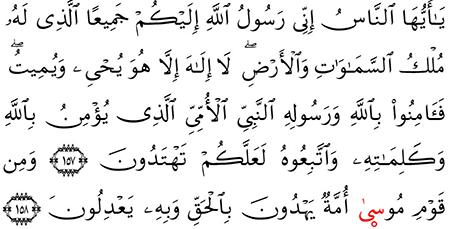 يَـٰٓأَيُّهَا ٱلنَّاسُ إِنِّي رَسُولُ ٱللَّهِ إِلَيۡكُمۡ جَمِيعًا ٱلَّذِي لَهُۥ
مُلۡكُ ٱلسَّمَـٰوَٰتِ وَٱلۡأَرۡضِۖ لَآ إِلَـٰهَ إِلَّا هُوَ يُحۡيِۦ وَيُمِيتُۖ
فَـَٔامِنُواْ بِٱللَّهِ وَرَسُولِهِ ٱلنَّبِيِّ ٱلۡأُمِّيِّ ٱلَّذِي يُؤۡمِنُ بِٱللَّهِ
وَكَلِمَـٰتِهِۦ وَٱتَّبِعُوهُ لَعَلَّكُمۡ تَهۡتَدُونَ ١٥٧ وَمِن
قَوۡمِ مُوسَىٰٓ أُمَّةٞ يَهۡدُونَ بِٱلۡحَقِّ وَبِهِۦ يَعۡدِلُونَ ١٥٨